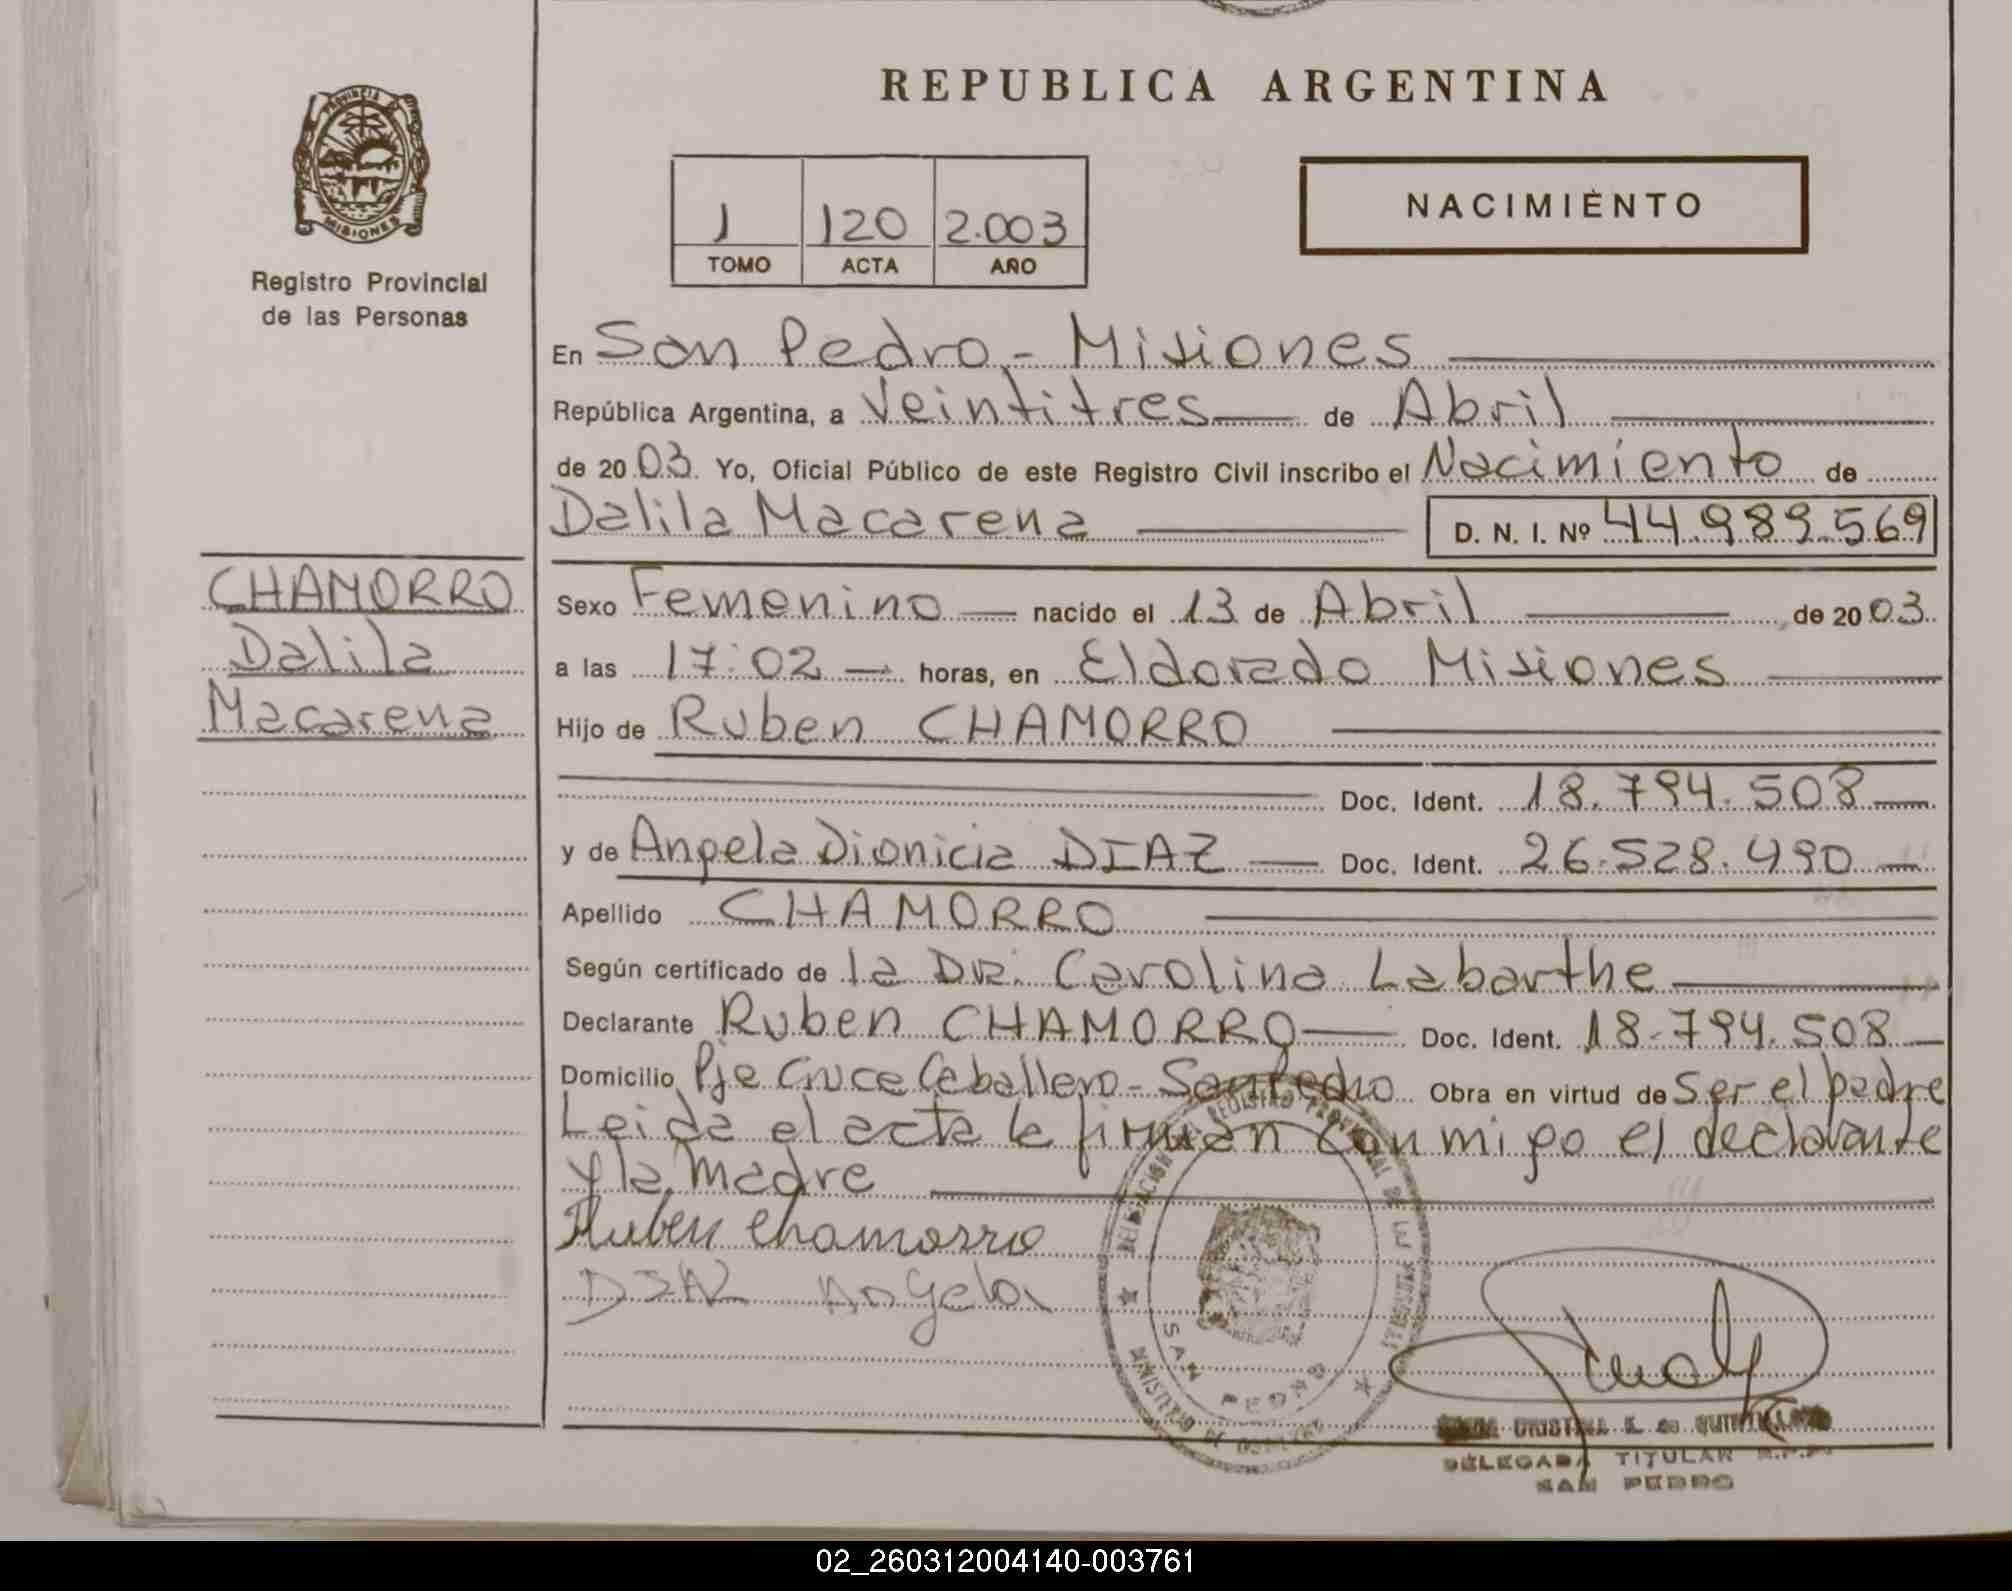 REPUBLICA ARGENTINA
PROVINCIA DE MISIONES
Registro Provincial
de las Personas
1 120 2.003
TOMO ACTA AÑO
NACIMIENTO
En San Pedro - Misiones
República Argentina, a Veintitres de Abril
de 2003. Yo, Oficial Público de este Registro Civil inscribo el Nacimiento de
Dalila Macarena D. N. I. Nº 44.989.569
CHAMORRO
Dalila
Macarena
Sexo Femenino nacido el 13 de Abril de 2003.
a las 17:02 horas, en Eldorado Misiones
Hijo de Ruben CHAMORRO
Doc. Ident. 18.794.508
y de Angela Dionicia DIAZ Doc. Ident. 26.528.490
Apellido CHAMORRO
Según certificado de la Dra. Carolina Labarthe
Declarante Ruben CHAMORRO Doc. Ident. 18.794.508
Domicilio Pje Cruce Caballero - San Pedro Obra en virtud de Ser el padre
Leida el acta la firman conmigo el declarante
y la madre
Ruben Chamorro
DIAZ Angela
DELEGACION REGISTRO PROVINCIAL DE
SAN PEDRO
MINISTERIO DE GOBIERNO
CRISTINA
DELEGADA TITULAR R.P.P.
SAN PEDRO
02_260312004140-003761